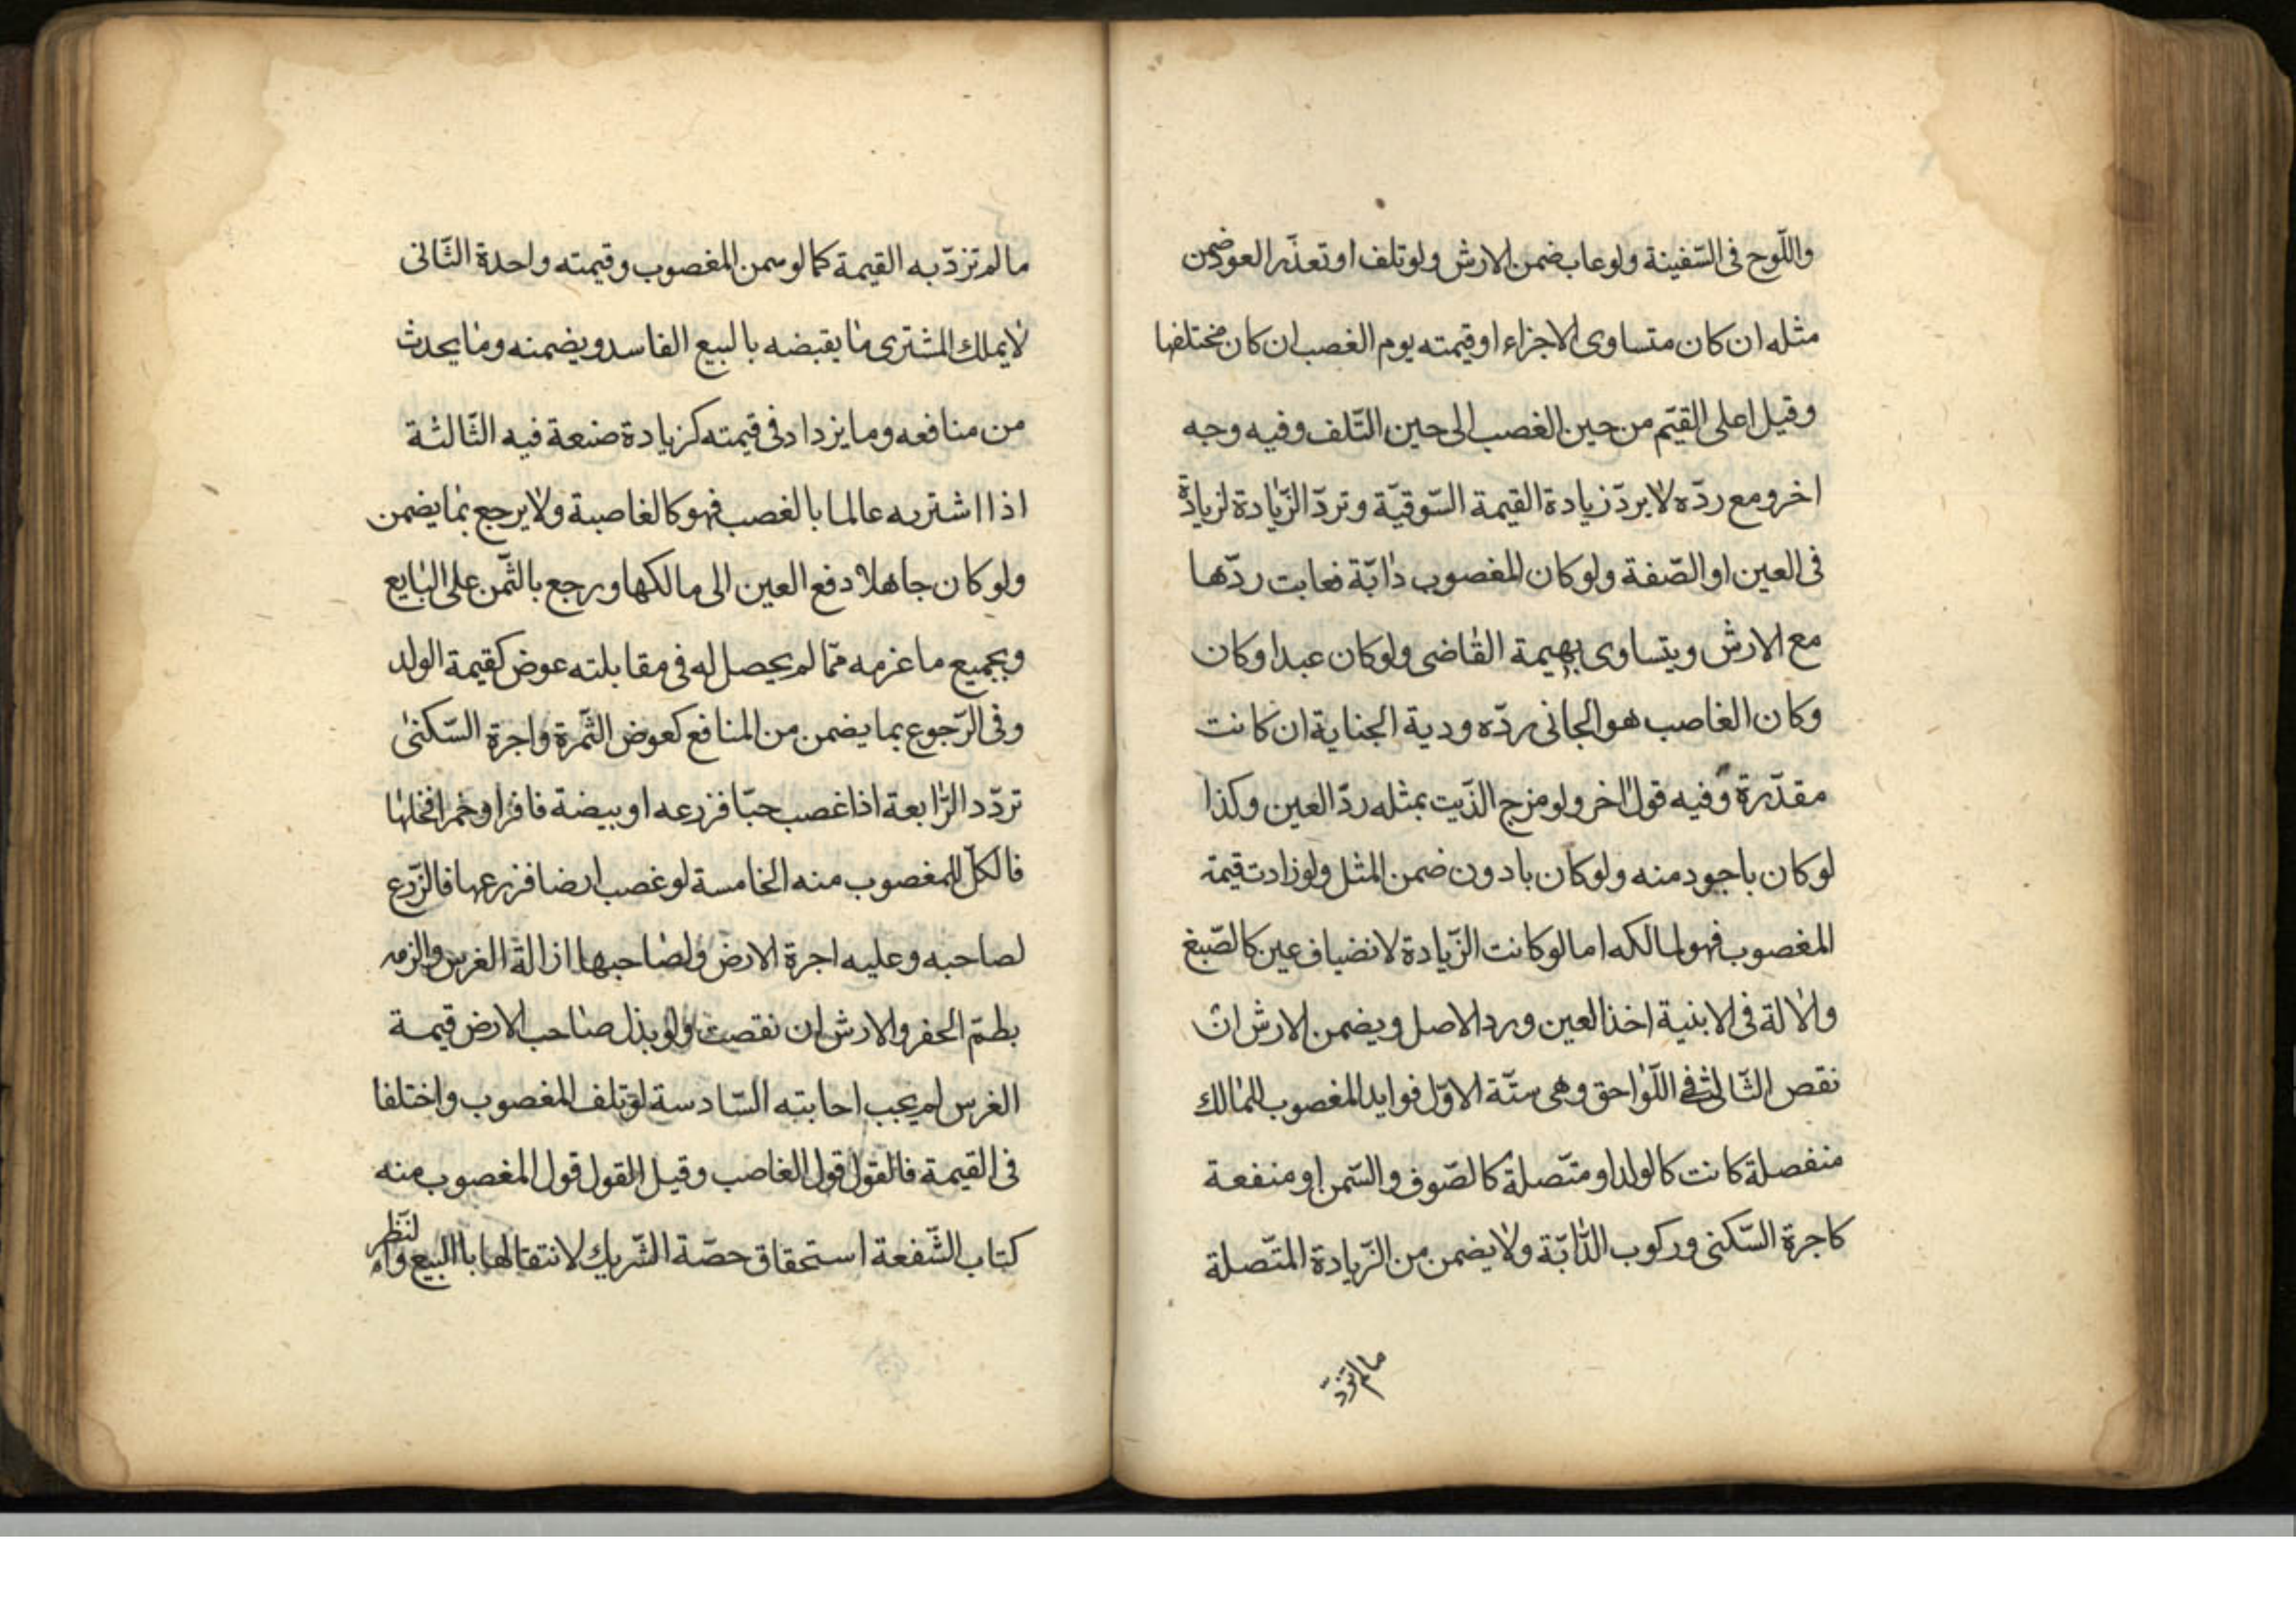 واللّوح فى السّفينة ولو عاب ضمن الارش ولو تلف او تعذّر العود ضمن
مثله ان كان متساوى الاجزاء او قيمته يوم الغصب ان كان مختلفها
وقيل اعلى القيّم من حين الغصب الى حين التّلف وفيه وجه
اخر ومع ردّه لا يردّ زيادة القيمة السّوقيّة وتردّ الزّيادة لزيادة
فى العين او الصّفة ولو كان المغصوب دابّة فعابت ردّها
مع الارش ويتساوى بهيمة القاضى ولو كان عبدا وكان
وكان الغاصب هو الجانى ردّه ودية الجناية ان كانت
مقدّرة وفيه قول اخر ولو مزج الذّيت بمثله ردّ العين وكذا
لو كان باجود منه ولو كان بادون ضمن المثل ولو زادت قيمة
المغصوب فهو لمالكه اما لو كانت الزّيادة لانضياف عين كالصّبغ
والالة فى الابنية اخذ العين ورد الاصل ويضمن الارش ان
نقص الثّالث فى اللّواحق وهى ستّة الاوّل فوايد المغصوب للمالك
منفصلة كانت كالولد او متّصلة كالصّوف والسّمن او منفعة
كاجرة السّكنى وركوب الدّابّة ولا يضمن من الزّيادة المتّصلة
ما لم تزدّ
ما لم تزدّ به القيمة كما لو سمن المغصوب وقيمته واحدة الثّانى
لا يملك المشترى ما يقبضه بالبيع الفاسد ويضمنه وما يحدث
من منافعه وما يزداد فى قيمته كزيادة صنعة فيه الثّالثة
اذا اشتريه عالما بالغصب فهو كالغاصبة ولا يرجع بما يضمن
ولو كان جاهلا دفع العين الى مالكها ورجع بالثّمن على البايع
وبجميع ما غرمه ممّا لم يحصل له فى مقابلته عوض كقيمة الولد
وفى الرّجوع بما يضمن من المنافع كعوض الثّمرة واجرة السّكنى
تردّد الرّابعة اذا غصب حبّا فزرعه او بيضة فافرا وخمرا فخلها
فالكلّ للمغصوب منه الخامسة لو غصب ارضا فزرعها فالزّرع
لصاحبه وعليه اجرة الارض ولصاحبها ازالة الغرس والزمه
بطمّ الحفر والارش ان نقصت ولو بذل صاحب الارض قيمة
الغرس لم يجب اجابته السّادسة لو تلف المغصوب واختلفا
فى القيمة فالقول قول الغاصب وقيل القول قول المغصوب منه
كتاب الشّفعة استحقاق حصّة الشّريك لانتقالها باالبيع لنّظر